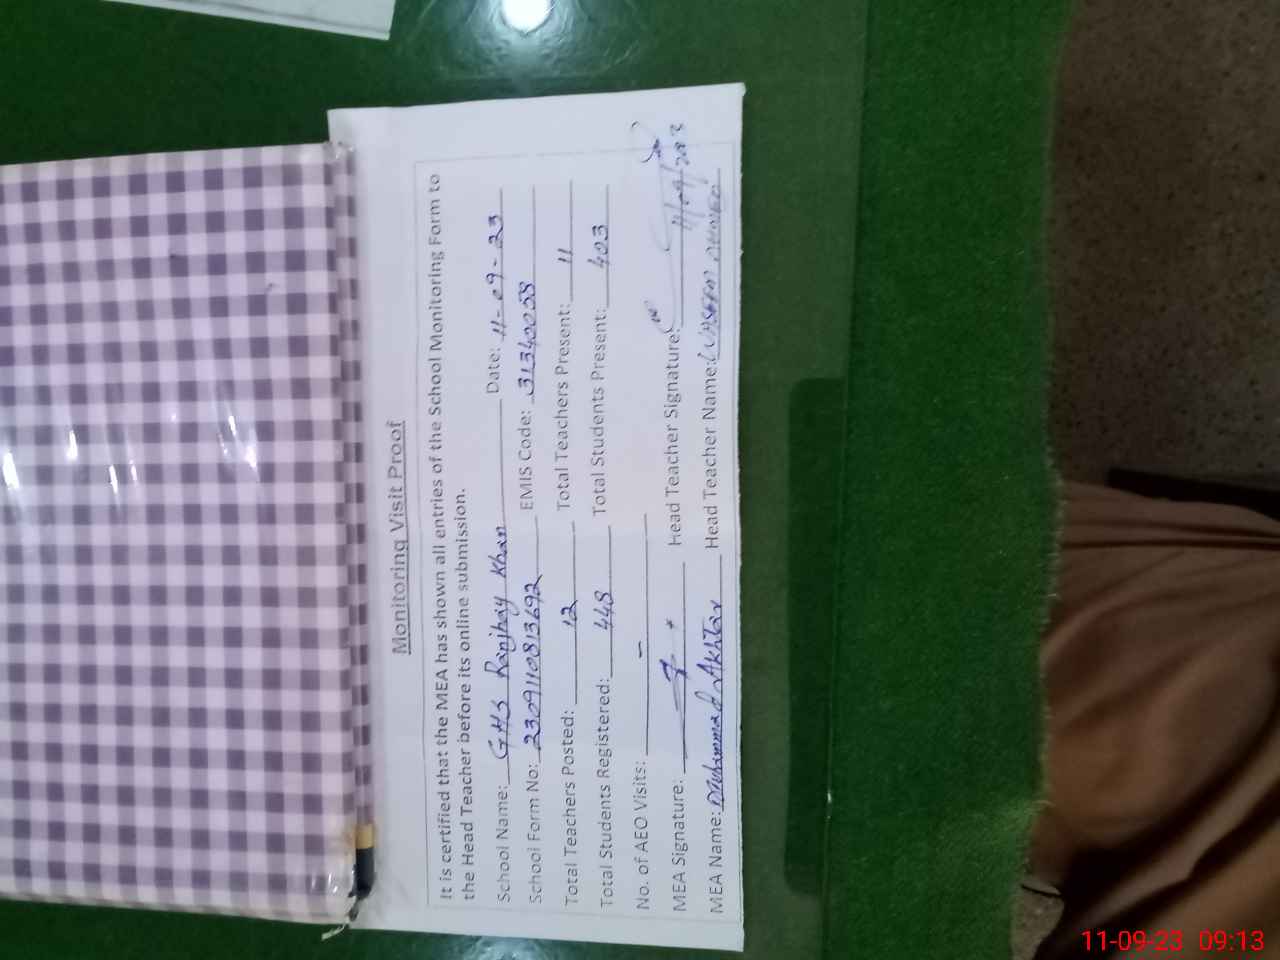 Monitoring Visit Proof
It is certified that the MEA has shown all entries of the School Monitoring Form to
the Head Teacher before its online submission.
School Name: GHS Ranjhay Khan Date: 11-09-23
School Form No: 2309110813692 EMIS Code: 31340058
Total Teachers Posted: 12 Total Teachers Present: 11
Total Students Registered: 448 Total Students Present: 403
No. of AEO Visits: -
MEA Signature: Head Teacher Signature:
MEA Name: Muhammad Akhtar Head Teacher Name: Waseem Ahmed
11-09-23 09:13